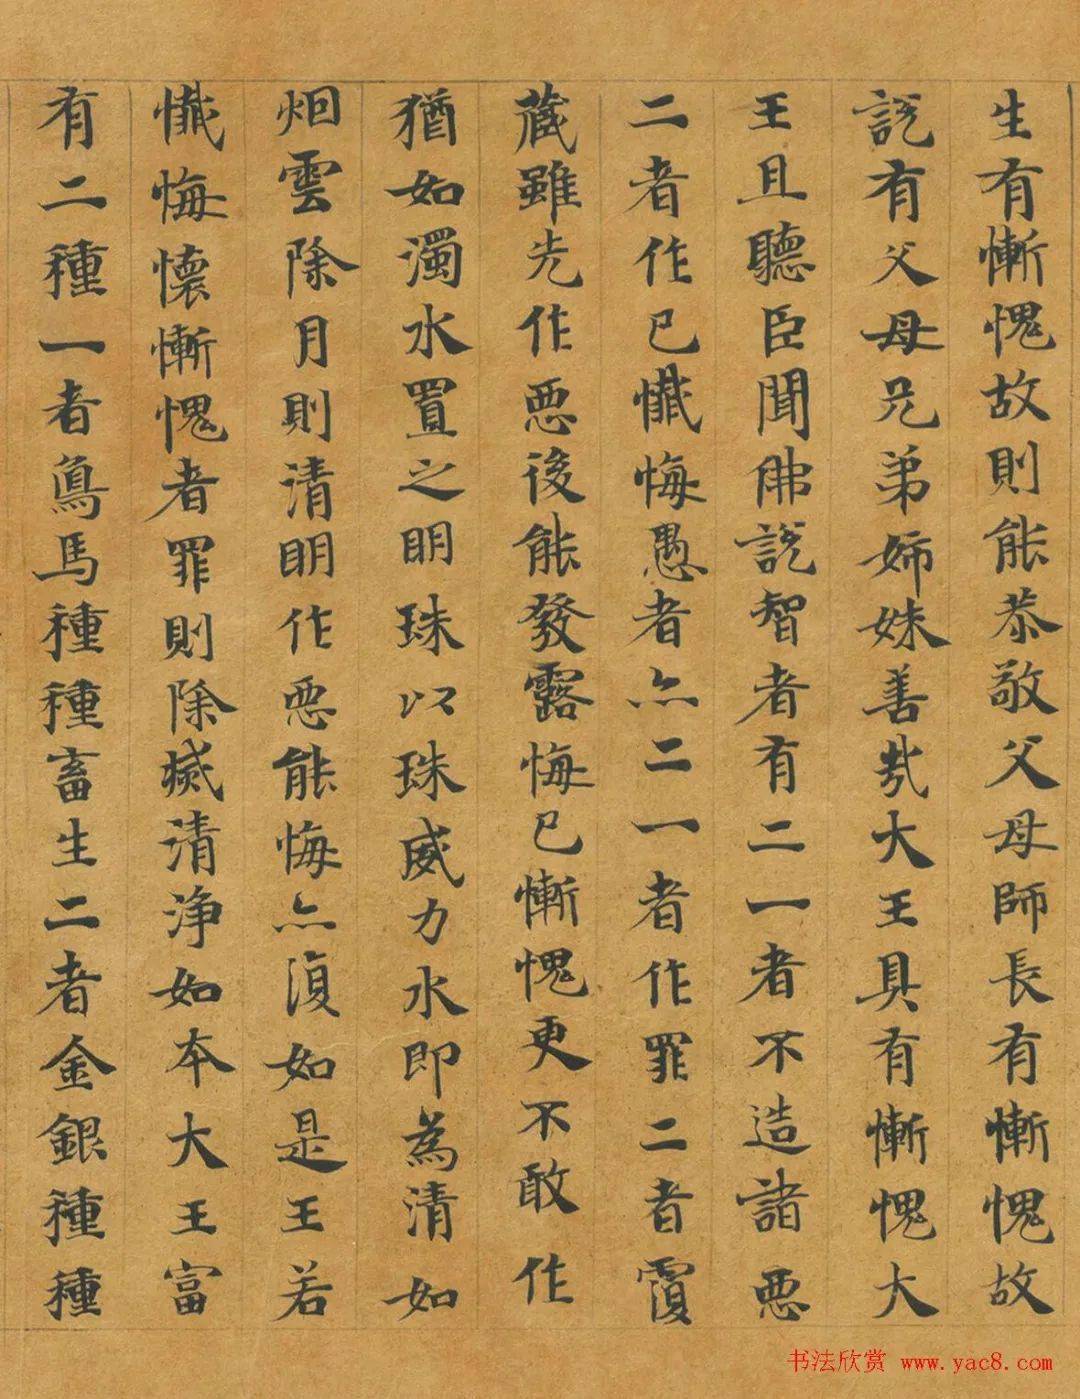 生有慚愧故則能恭敬父母師長有慚愧故
說有父母兄弟姉妹善哉大王具有慚愧大
王且聽臣聞佛說智者有二一者不造諸惡
二者作已懺悔愚者亦二一者作罪二者覆
藏雖先作惡後能發露悔已慚愧更不敢作
猶如濁水置之明珠以珠威力水即為清如
烟雲除月則清明作惡能悔亦復如是王若
懺悔懷慚愧者罪則除滅清淨如本大王富
有二種一者象馬種種畜生二者金銀種種
书法欣赏 www.yac8.com